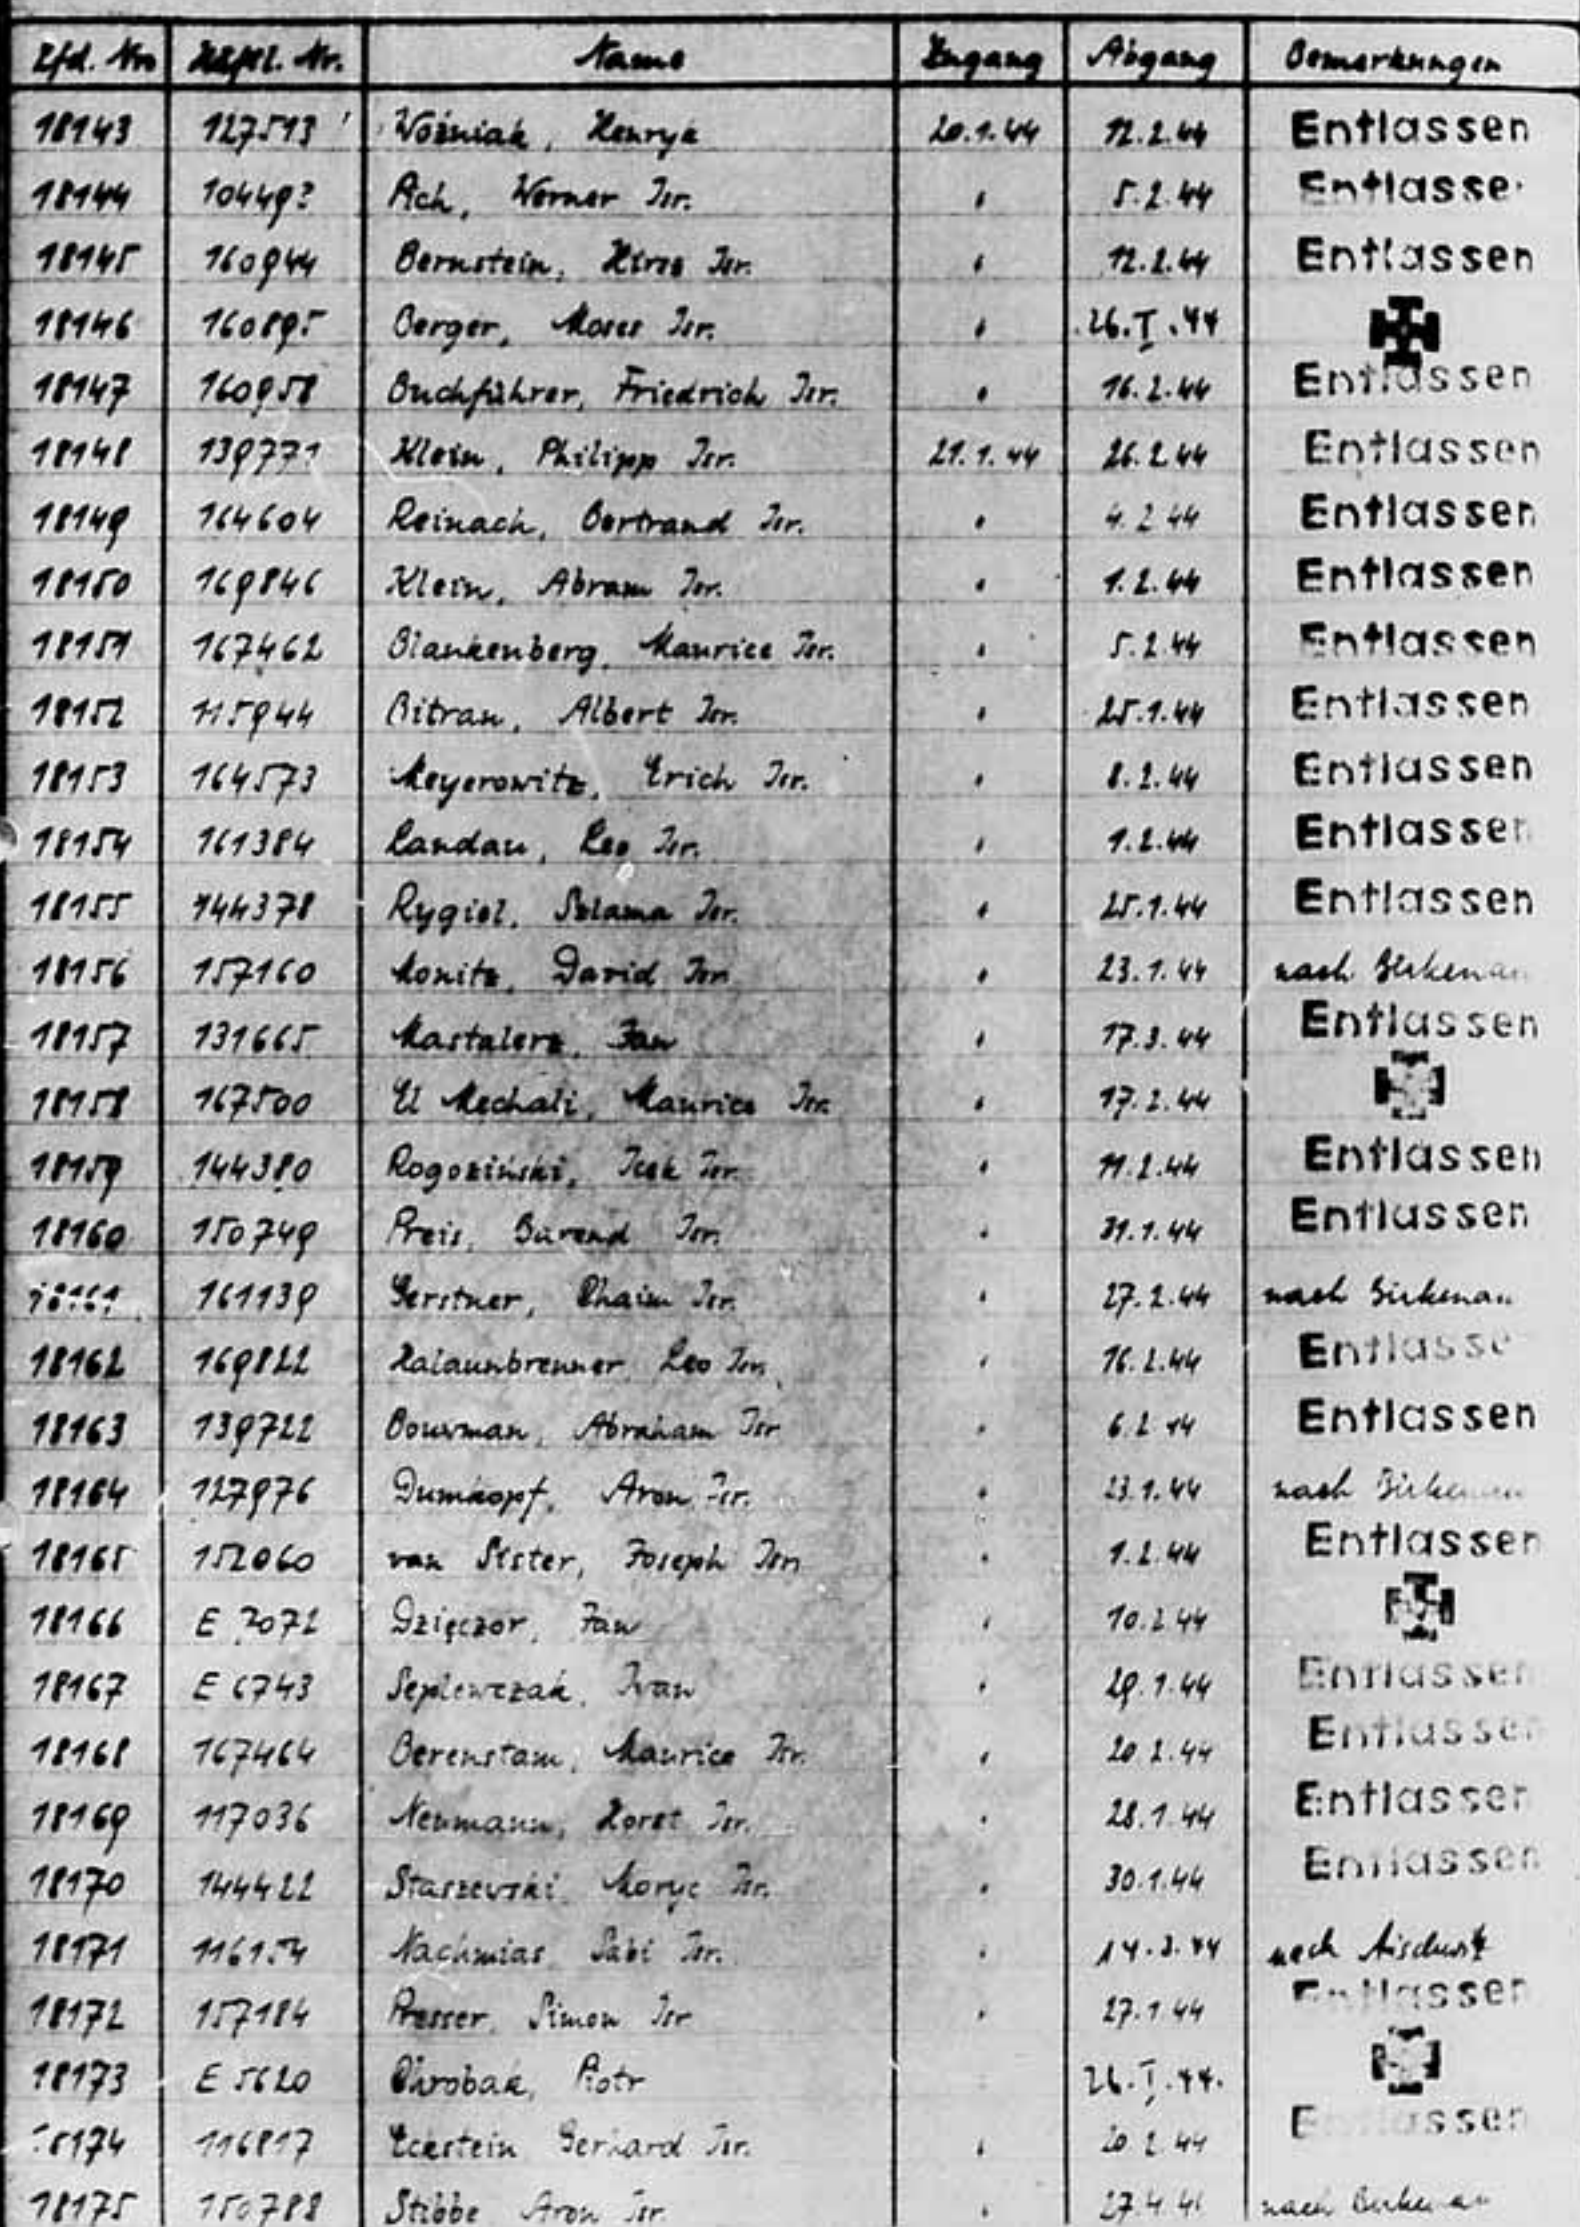 Lfd. Nr. Häftl. Nr. Name Zugang Abgang Bemerkungen
18143 127513 Woźniak, Henryk 20.1.44 12.2.44 Entlassen
18144 Ach, Werner Isr. " 5.2.44 Entlassen
18145 160944 Bernstein, Isr. " 12.2.44 Entlassen
18146 160895 Berger, Moses Isr. " 26.I.44
18147 160958 Buchführer, Friedrich Isr. " 16.2.44 Entlassen
18148 139771 Klein, Philipp Isr. 21.1.44 26.2.44 Entlassen
18149 164604 Reinach, Bertrand Isr. " 4.2.44 Entlassen
18150 169846 Klein, Abram Isr. " 1.2.44 Entlassen
18151 167462 Blankenberg, Maurice Isr. " 5.2.44 Entlassen
18152 115944 Bitran, Albert Isr. " 25.1.44 Entlassen
18153 164573 Meyerowitz, Erich Isr. " 8.2.44 Entlassen
18154 161384 Landau, Leo Isr. " 1.2.44 Entlassen
18155 144378 Rygiel, Szlama Isr. " 25.1.44 Entlassen
18156 157160 Monitz, David Isr. " 23.1.44 nach Birkenau
18157 131665 Mastalerz, Jan " 17.3.44 Entlassen
18158 167500 El Mechali, Maurice Isr. " 17.2.44
18159 144380 Rogoziński, Icek Isr. " 11.2.44 Entlassen
18160 150749 Preis, Barend Isr. " 31.1.44 Entlassen
18161 161139 Gerstner, Chaim Isr. " 27.2.44 nach Birkenau
18162 169822 Halaunbrenner, Leo Isr. " 16.2.44 Entlassen
18163 139722 Bouwman, Abraham Isr. " 6.2.44 Entlassen
18164 127976 Dumkopf, Aron Isr. " 23.1.44 nach Birkenau
18165 152060 van Sister, Joseph Isr. " 1.2.44 Entlassen
18166 E Dzięczor, Jan " 10.2.44
18167 E 6743 Seplewczak, Iwan " 29.1.44 Entlassen
18168 167464 Berenstam, Maurice Isr. " 20.2.44 Entlassen
18169 117036 Neumann, Horst Isr. " 28.1.44 Entlassen
18170 144422 Staszewski, Moryc Isr. " 30.1.44 Entlassen
18171 116154 Nachmias, Sabi Isr. " nach
18172 157184 Presser, Simon Isr. " 27.1.44 Entlassen
18173 E 5620 Chrobak, Piotr 26.I.44.
18174 116817 Eckstein, Gerhard Isr. " 20.2.44 Entlassen
18175 150788 Stibbe, Aron Isr. " nach Birkenau